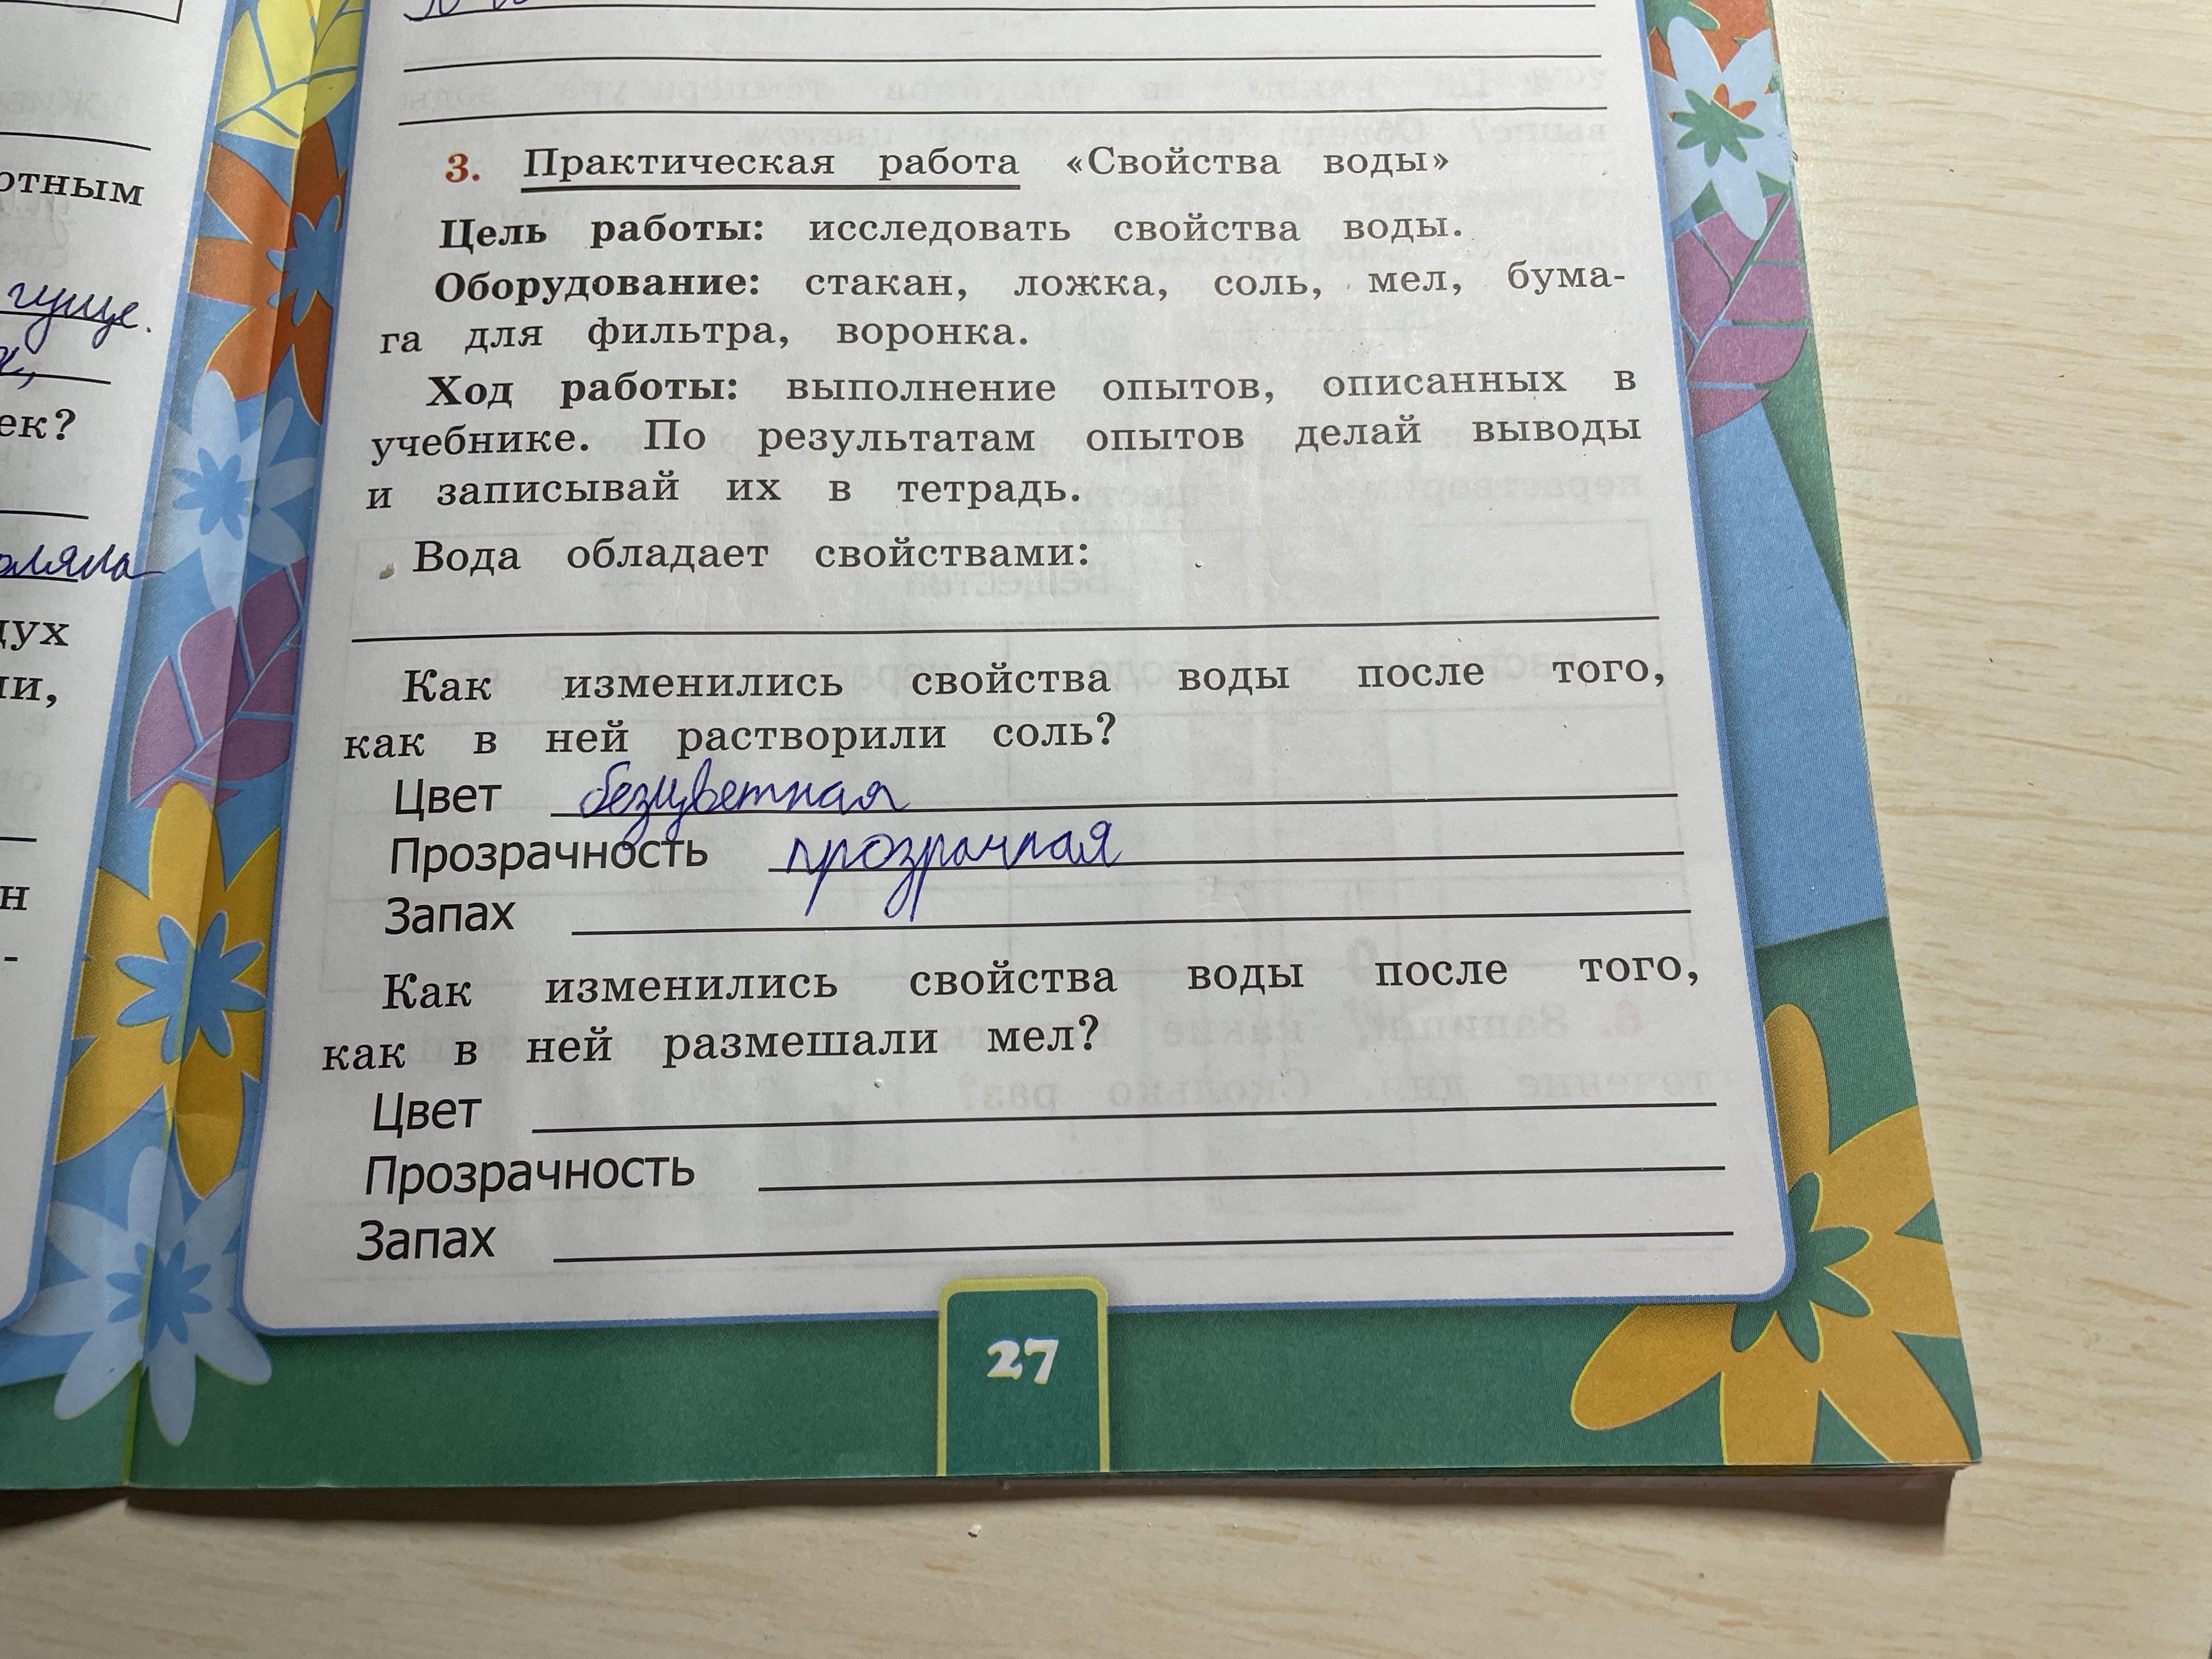 отным
гуще.
ек?
оляла
дух
ли,
н
-
3. Практическая работа «Свойства воды»
Цель работы: исследовать свойства воды.
Оборудование: стакан, ложка, соль, мел, бума-
га для фильтра, воронка.
Ход работы: выполнение опытов, описанных в
учебнике. По результатам опытов делай выводы
и записывай их в тетрадь.
Вода обладает свойствами:
Как изменились свойства воды после того,
как в ней растворили соль?
Цвет безцветная
Прозрачность прозрачная
Запах
Как изменились свойства воды после того,
как в ней размешали мел?
Цвет
Прозрачность
Запах
27